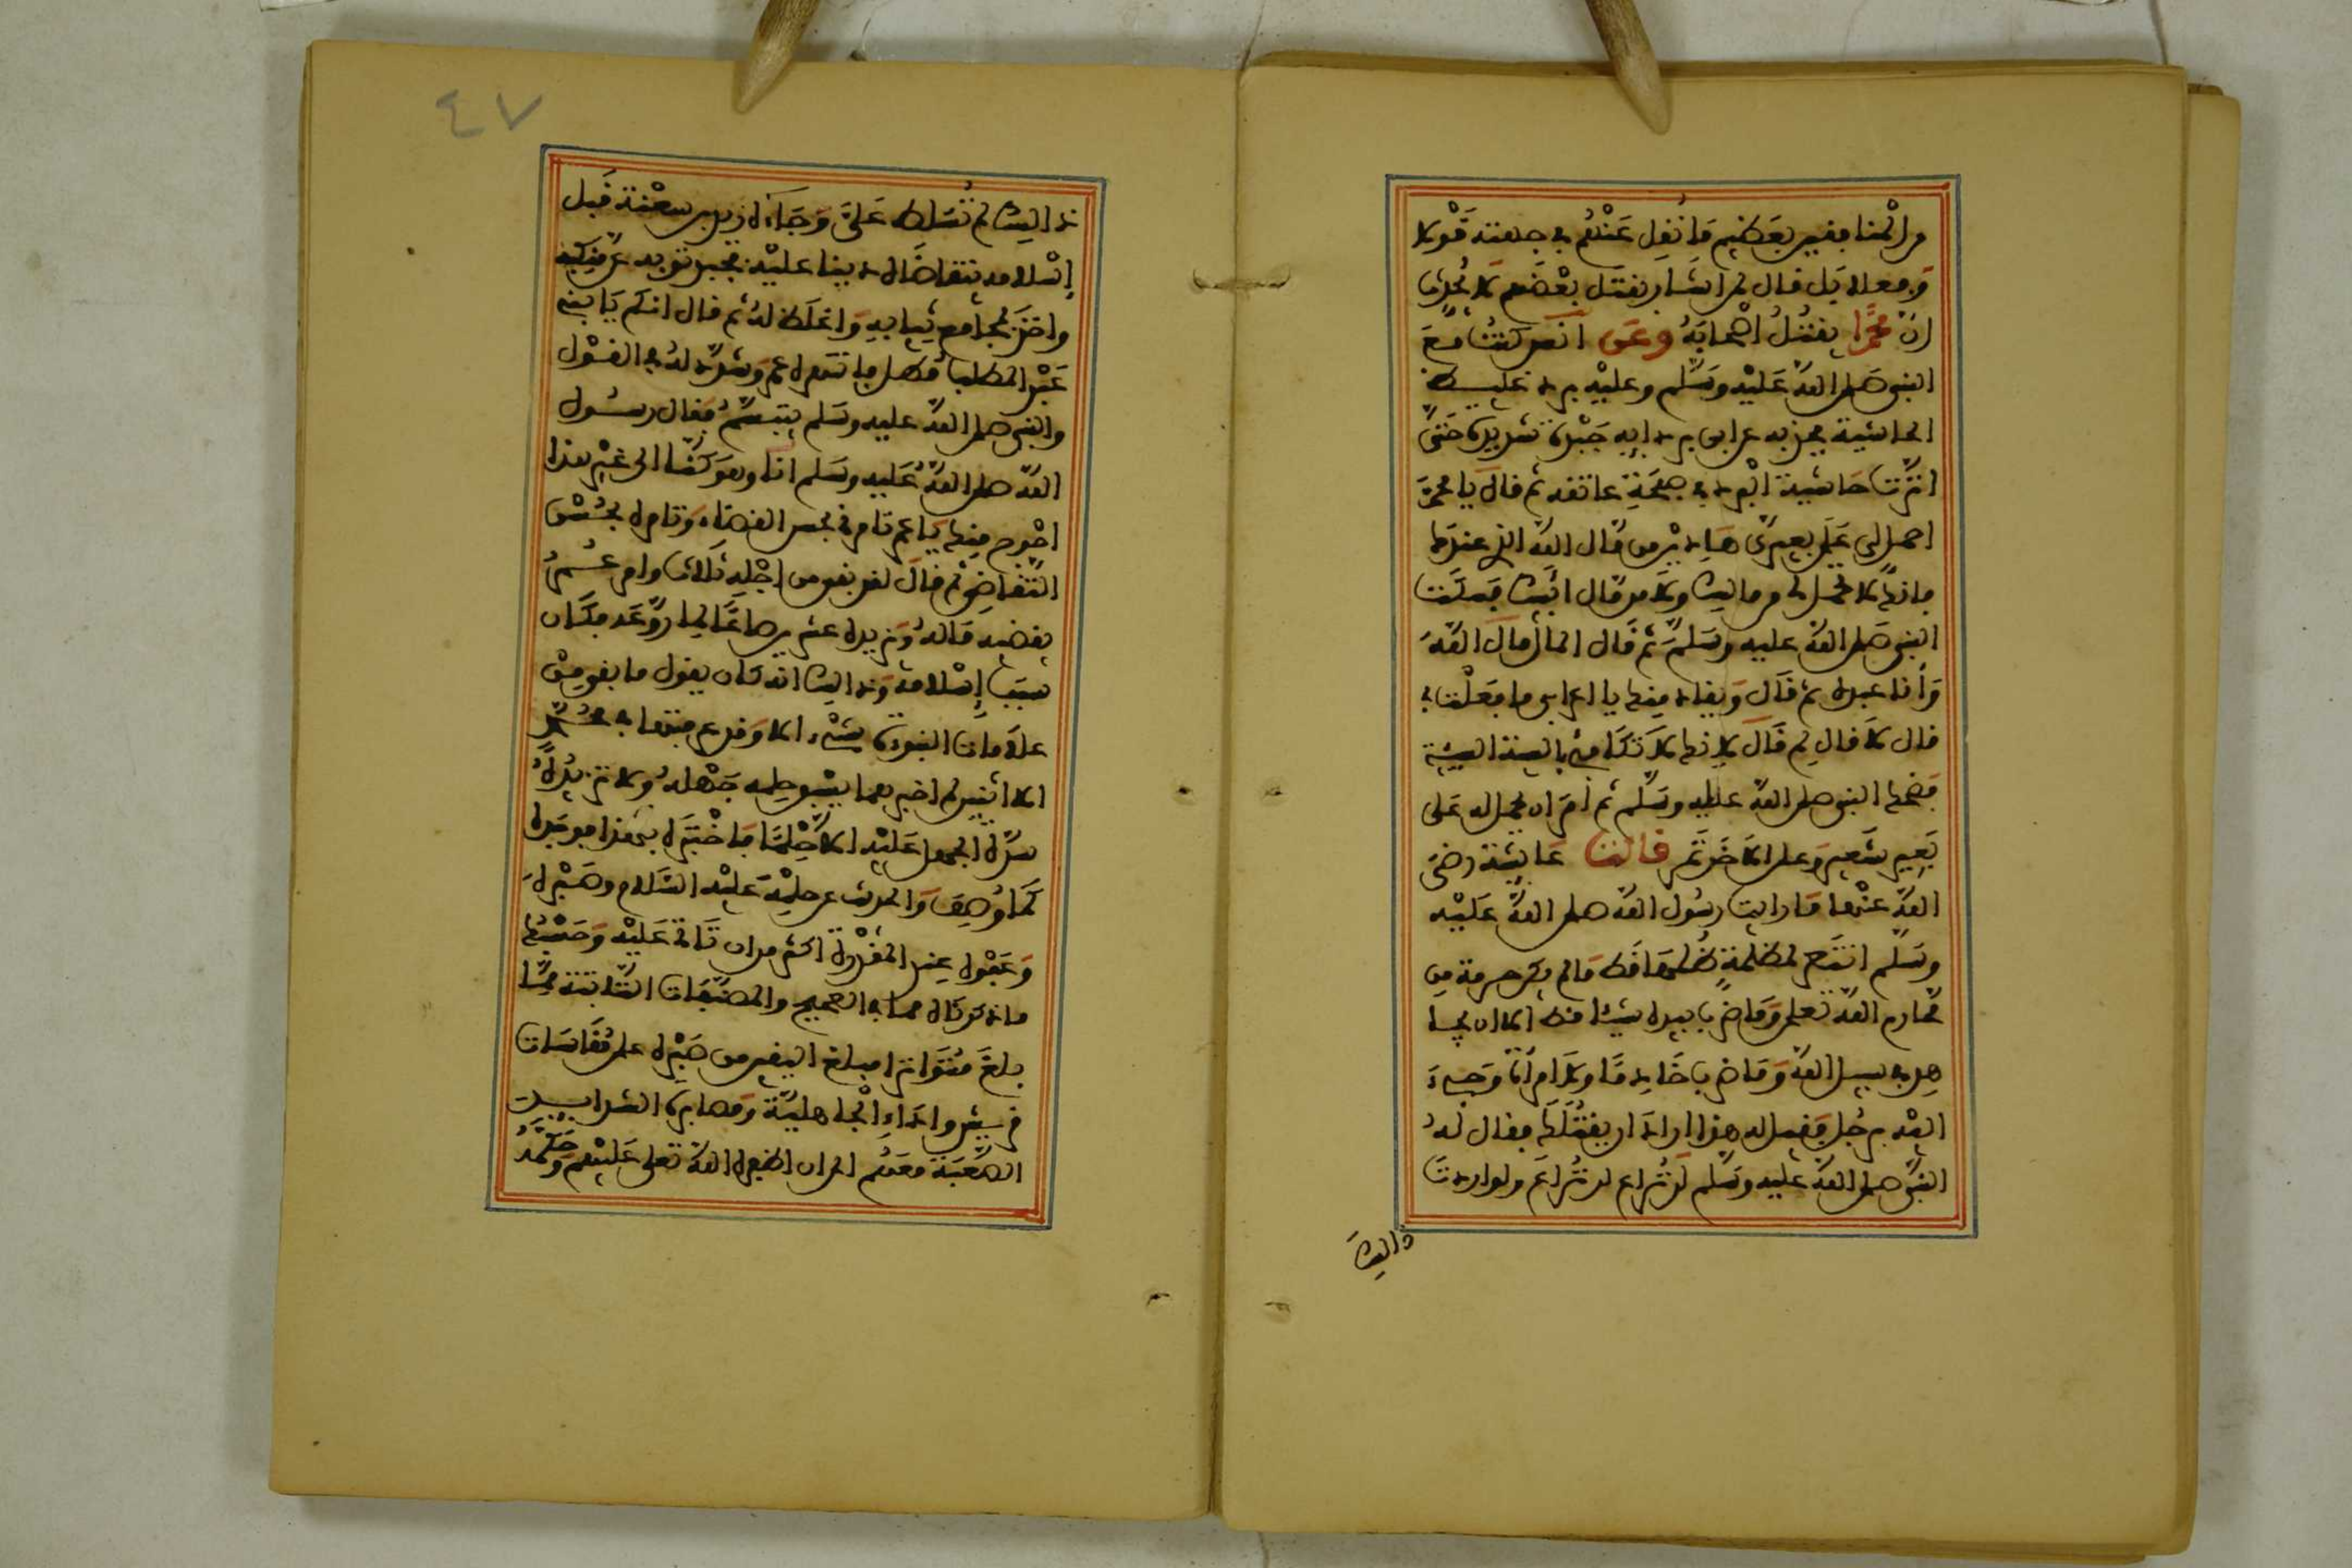 من المنافقين بعظيم ما نقل عنهم في جهته قولا
وفعلا بل قال لمن اشار بقتل بعضهم لا يتحدث
ان محمدا يقتل اصحابه وعن انس كنت مع
النبي صلى الله عليه وسلم وعليه برد غليظ
الحاشية فجذبه اعرابي بردايه جبذة شديدة حتى
اثرت حاشية البرد في صفحة عاتقه ثم قال يا محمد
احمل لي على بعيري هاذين من مال الله الذي عندك
فانك لا تحمل لي من مالك ولا من مال ابيك فسكت
النبي صلى الله عليه وسلم ثم قال المال مال الله
وأنا عبده ثم قال ويقاد منك يا اعرابي ما فعلت بي
قال لا قال لم قال لانك لا تكافئ بالسيئة السيئة
فضحك النبي صلى الله عليه وسلم ثم أمر ان يحمل له على
بعير شعير وعلى الاخر تمر قالت عايشة رضي
الله عنها ما رايت رسول الله صلى الله عليه
وسلم انتصر لمظلمة ظلمها قط ما لم يكن حرمة من
محارم الله تعلى وما ضرب بيده شيئا قط الا ان يجا
هد في سبيل الله وما ضرب خادما ولا امرأة وجيء
اليه برجل فقيل له هذا اراد ان يقتلك فقال له
النبي صلى الله عليه وسلم لن تراع لن تراع ولو اردت
ذالك
٤٧
ذالك لم تسلط علي وجاءه زيد بن سعنة قبل
إسلامه يتقاضاه دينا عليه فجبذ ثوبه عن منكبه
واخذ بمجامع ثيابه واغلظ له ثم قال انكم يا بني
عبد المطلب مطل فانتهره عمر وشدد له في القول
والنبي صلى الله عليه وسلم يتبسم فقال رسول
الله صلى الله عليه وسلم انا وهو كنا الى غير هذا
احوج منك يا عمر تامرني بحسن القضاء وتامره بحسن
التقاضي ثم قال لقد بقي من اجله ثلاث وامر عمر
يقضيه ماله ويزيده عشرين صاعا لما روعه فكان
سبب إسلامه وذالك انه كان يقول ما بقي من
علامات النبوة شيء الا وقد عرفتها في محمد
الا اثنين لم اخبرهما يسبق حلمه جهله ولا تزيده
شدة الجهل عليه الا حلما فاختبره بهذا فوجده
كما وصف والحديث عن حلمه عليه السلام وصبره
وعفوه عند المقدرة اكثر من ان تاتي عليه وحسبك
ما ذكرناه مما في الصحيح والمصنفات الثابتة مما
بلغ متواترا مبلغ اليقين من صبره على مقاسات
قريش واذاء الجاهلية ومصابرة الشدايد
الصعبة معهم الى ان اظفره الله تعلى عليهم وحكمه